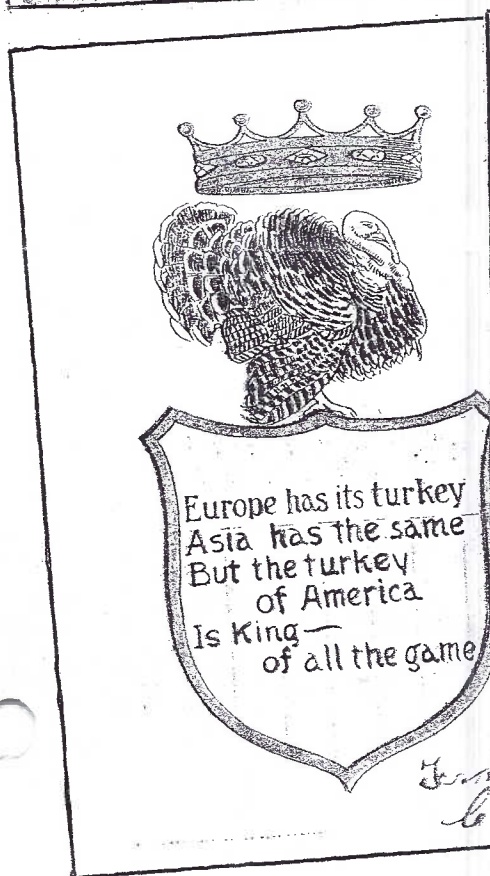 Europe has its turkey
Asia has the same
But the turkey
of America
Is King—
of all the game